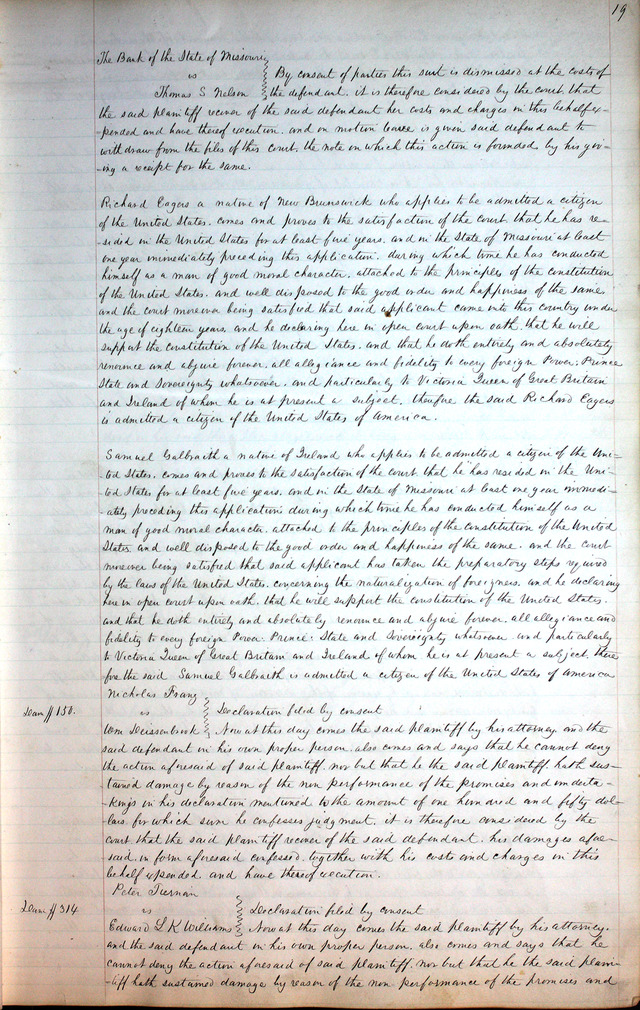 19
The Bank of the State of Missouri
vs
By consent of parties this suit is dismissed at the costs of
Thomas S Nelson
the defendant. it is therefore considered by the court that
the said plaintiff recover of the said defendant her costs and charges in this behalf ex-
-pended and have thereof execution. and on motion leave is given said defendant to
withdraw from the files of this court. the note on which this action is founded by his giv-
-ing a receipt for the same.
Richard Eagers a native of New Brunswick who applies to be admitted a citizen
of the United States. comes and proves to the satisfaction of the court that he has re-
-sided in the United States for at least five years. and in the State of Missouri at least
one year immediately preceding this application. during which time he has conducted
himself as a man of good moral character. attached to the principles of the constitution
of the United States. and well disposed to the good order and happiness of the same
and the court moreover being satisfied that said applicant came into this country under
the age of eighteen years. and he declaring here in open court upon oath. that he will
support the constitution of the United States. and that he doth entirely and absolutely
renounce and abjure forever. all allegiance and fidelity to every foreign Power. Prince
State and Sovereignty whatsoever. and particularly to Victoria Queen of Great Britain
and Ireland of whom he is at present a subject. therefore the said Richard Eagers
is admitted a citizen of the United States of America.
Samuel Galbraith a native of Ireland who applies to be admitted a citizen of the Uni-
-ted States. comes and proves to the satisfaction of the court that he has resided in the Uni-
-ted States for at least five years. and in the State of Missouri at least one year immedi-
-ately preceding this application during which time he has conducted himself as a
man of good moral character. attached to the principles of the constitution of the United
States. and well disposed to the good order and happiness of the same. and the court
moreover being satisfied that said applicant has taken the preparatory steps required
by the laws of the United States. concerning the naturalization of foreigners. and he declaring
here in open court upon oath. that he will support the constitution of the United States.
and that he doth entirely and absolutely renounce and abjure forever. all allegiance and
fidelity to every foreign Power. Prince. State and Sovereignty whatsoever. and particularly
to Victoria Queen of Great Britain and Ireland of whom he is at present a subject. there
fore the said Samuel Galbraith is admitted a citizen of the United States of America
Nicholas Franz
150.
vs
Declaration filed by consent
Wm Deissenbrock
Now at this day comes the said plaintiff by his attorney. and the
said defendant in his own proper person. also comes and says that he cannot deny
the action aforesaid of said plaintiff. nor but that he the said plaintiff hath sus-
-tained damage by reason of the non performance of the promises and underta-
-kings in his declaration mentioned to the amount of one hundred and fifty dol-
-lars. for which sum he confesses judgment. it is therefore considered by the
court that the said plaintiff recover of the said defendant. his damages afore-
-said. in form aforesaid confessed. together with his costs and charges in this
behalf expended and have thereof execution.
Peter Tiernan
314
vs
Declaration filed by consent
Edward L K Williams
Now at this day comes the said plaintiff by his attorney.
and the said defendant in his own proper person. also comes and says that he
cannot deny the action aforesaid of said plaintiff. nor but that he the said plain-
-tiff hath sustained damage by reason of the non performance of the promises and